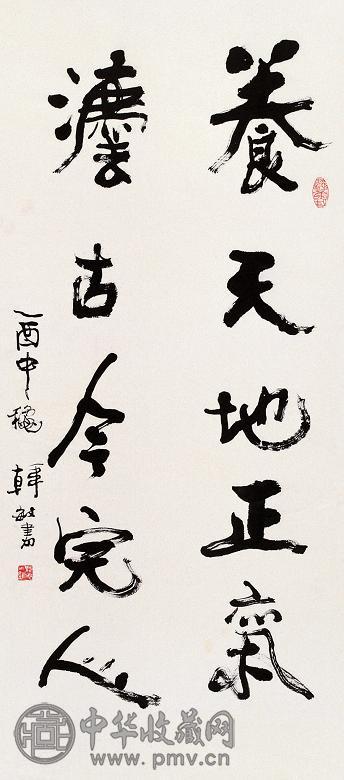 養天地正氣
灋古今完人
乙酉中穐 韓敏書
中华收藏网
www.pmv.cn